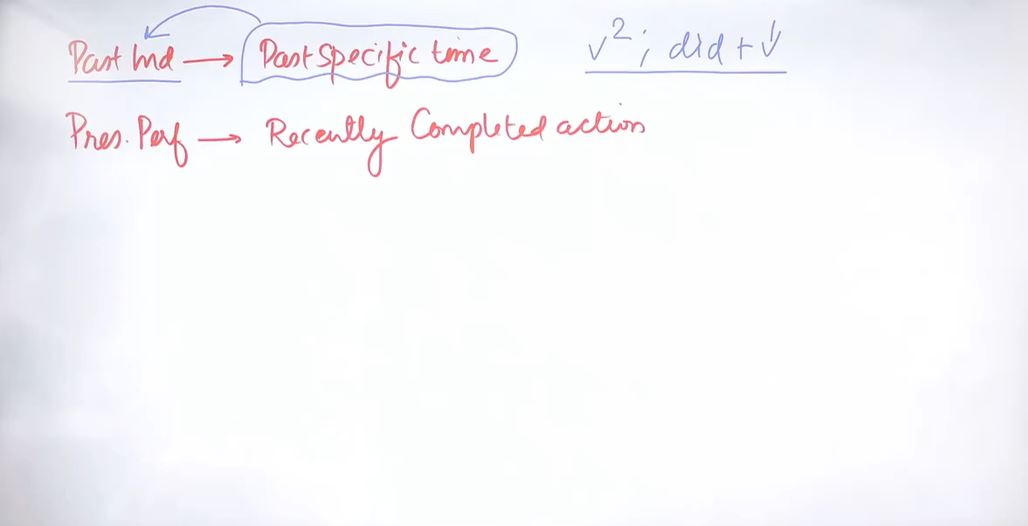 Past Ind → Past Specific time V²; did + V¹
Pres. Perf → Recently Completed action